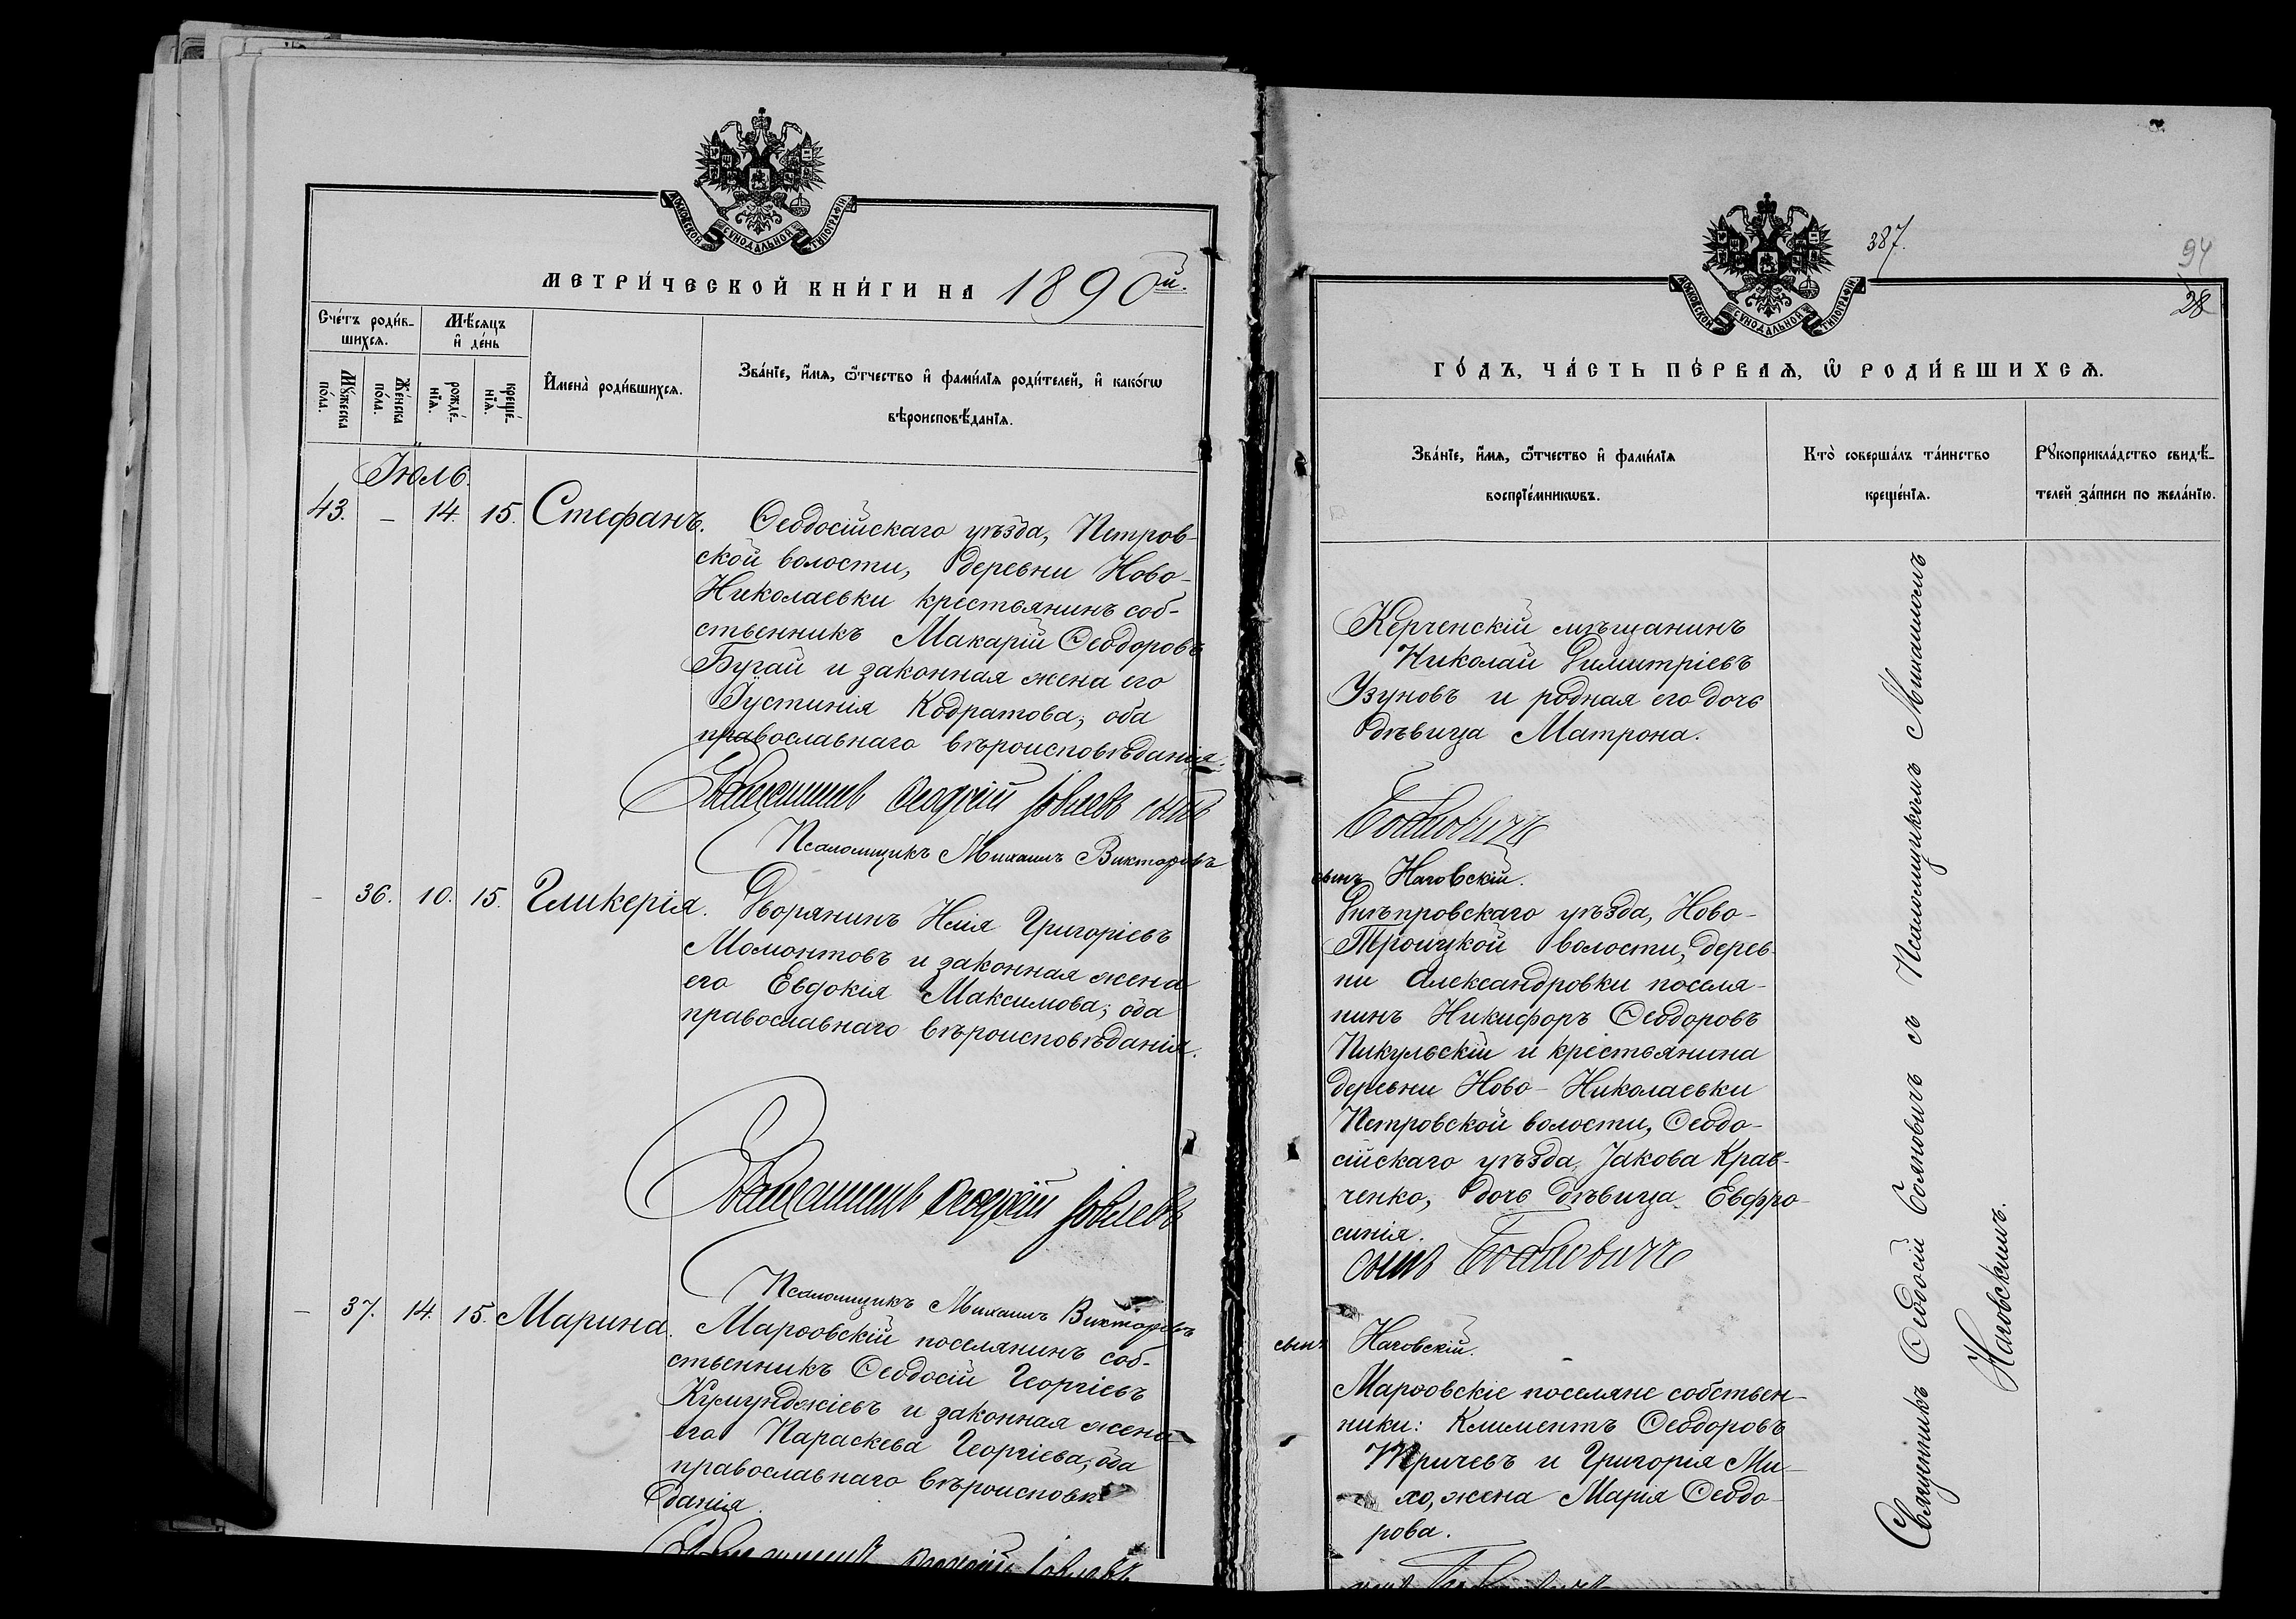 МОСКОВСКОЙ СѴНОДАЛЬНОЙ ТИПОГРАФІИ
МЕТРИ́ЧЕСКОЙ КНИ́ГИ НА 1890й.
Сче́тъ роди́в-
шихсѧ.
Мѣ́сѧцъ
и҆ де́нь
Мꙋ́жеска
по́ла.
Же́нска
по́ла.
рожде́-
нїѧ.
креще́-
нїѧ.
И҆мена̀ роди́вшихсѧ.
Зва́нїе, и҆́мѧ, ѻ҆́тчество и҆ фами́лїѧ роди́телей, и҆ како́гѡ
вѣроисповѣ́данїѧ.
Іюль.
43. – 14. 15. Стефанъ.
Ѳеодосійскаго уѣзда, Петров-
ской волости, деревни Ново-
Николаевки крестьянинъ соб-
ственникъ Макарій Ѳеодоровъ
Бугай и законная жена его
Іустинія Кодратова, оба
православнаго вѣроисповѣданія.
Священникъ Ѳеодосій Іовлевъ сынъ
Псаломщикъ Михаилъ Викторовъ
– 36. 10. 15. Гликерія.
Дворянинъ Илія Григоріевъ
Момонтовъ и законная жена
его Евдокія Максимова; оба
православнаго вѣроисповѣданія.
Священникъ Ѳеодосій Іовлевъ
Псаломщикъ Михаилъ Викторовъ
– 37. 14. 15. Марина.
Марѳовскій поселянинъ соб-
ственникъ Ѳеодосій Георгіевъ
Кумунджіевъ и законная жена
его Параскева Георгіева, оба
православнаго вѣроисповѣ
данія.
Священникъ Ѳеодосій Іовлевъ
МОСКОВСКОЙ СѴНОДАЛЬНОЙ ТИПОГРАФІИ
387.
94
28
ГО́ДЪ, ЧА́СТЬ ПЕ́РВАѦ, Ѡ҆ РОДИ́ВШИХСѦ.
Зва́нїе, и҆́мѧ, ѻ҆́тчество и҆ фами́лїѧ
воспрїе́мникѡвъ.
Кто̀ соверша́лъ та́инство
креще́нїѧ.
Рꙋкоприкла́дство свидѣ́-
телей за́писи по жела́нїю.
Керченскій мѣщанинъ
Николай Димитріевъ
Узуновъ и родная его дочь
дѣвица Матрона.
Боянович
сынъ Наговскій.
Днѣпровскаго уѣзда, Ново-
Троицкой волости, дерев-
ни Александровки поселя-
нинъ Никифоръ Ѳеодоровъ
Пикульскій и крестьянина
деревни Ново-Николаевки
Петровской волости, Ѳеодо-
сійскаго уѣзда, Іакова Крав-
ченко, дочь дѣвица Евфро-
синія.
сынъ Боянович
сынъ Наговскій.
Марѳовскіе поселяне собствен-
ники: Климентъ Ѳеодоровъ
Тричевъ и Григорія Ми-
хо, жена Марія Ѳеодо-
рова.
Священникъ Ѳеодосій Бояновичъ съ Псаломщикомъ Михаиломъ
Наговскимъ.